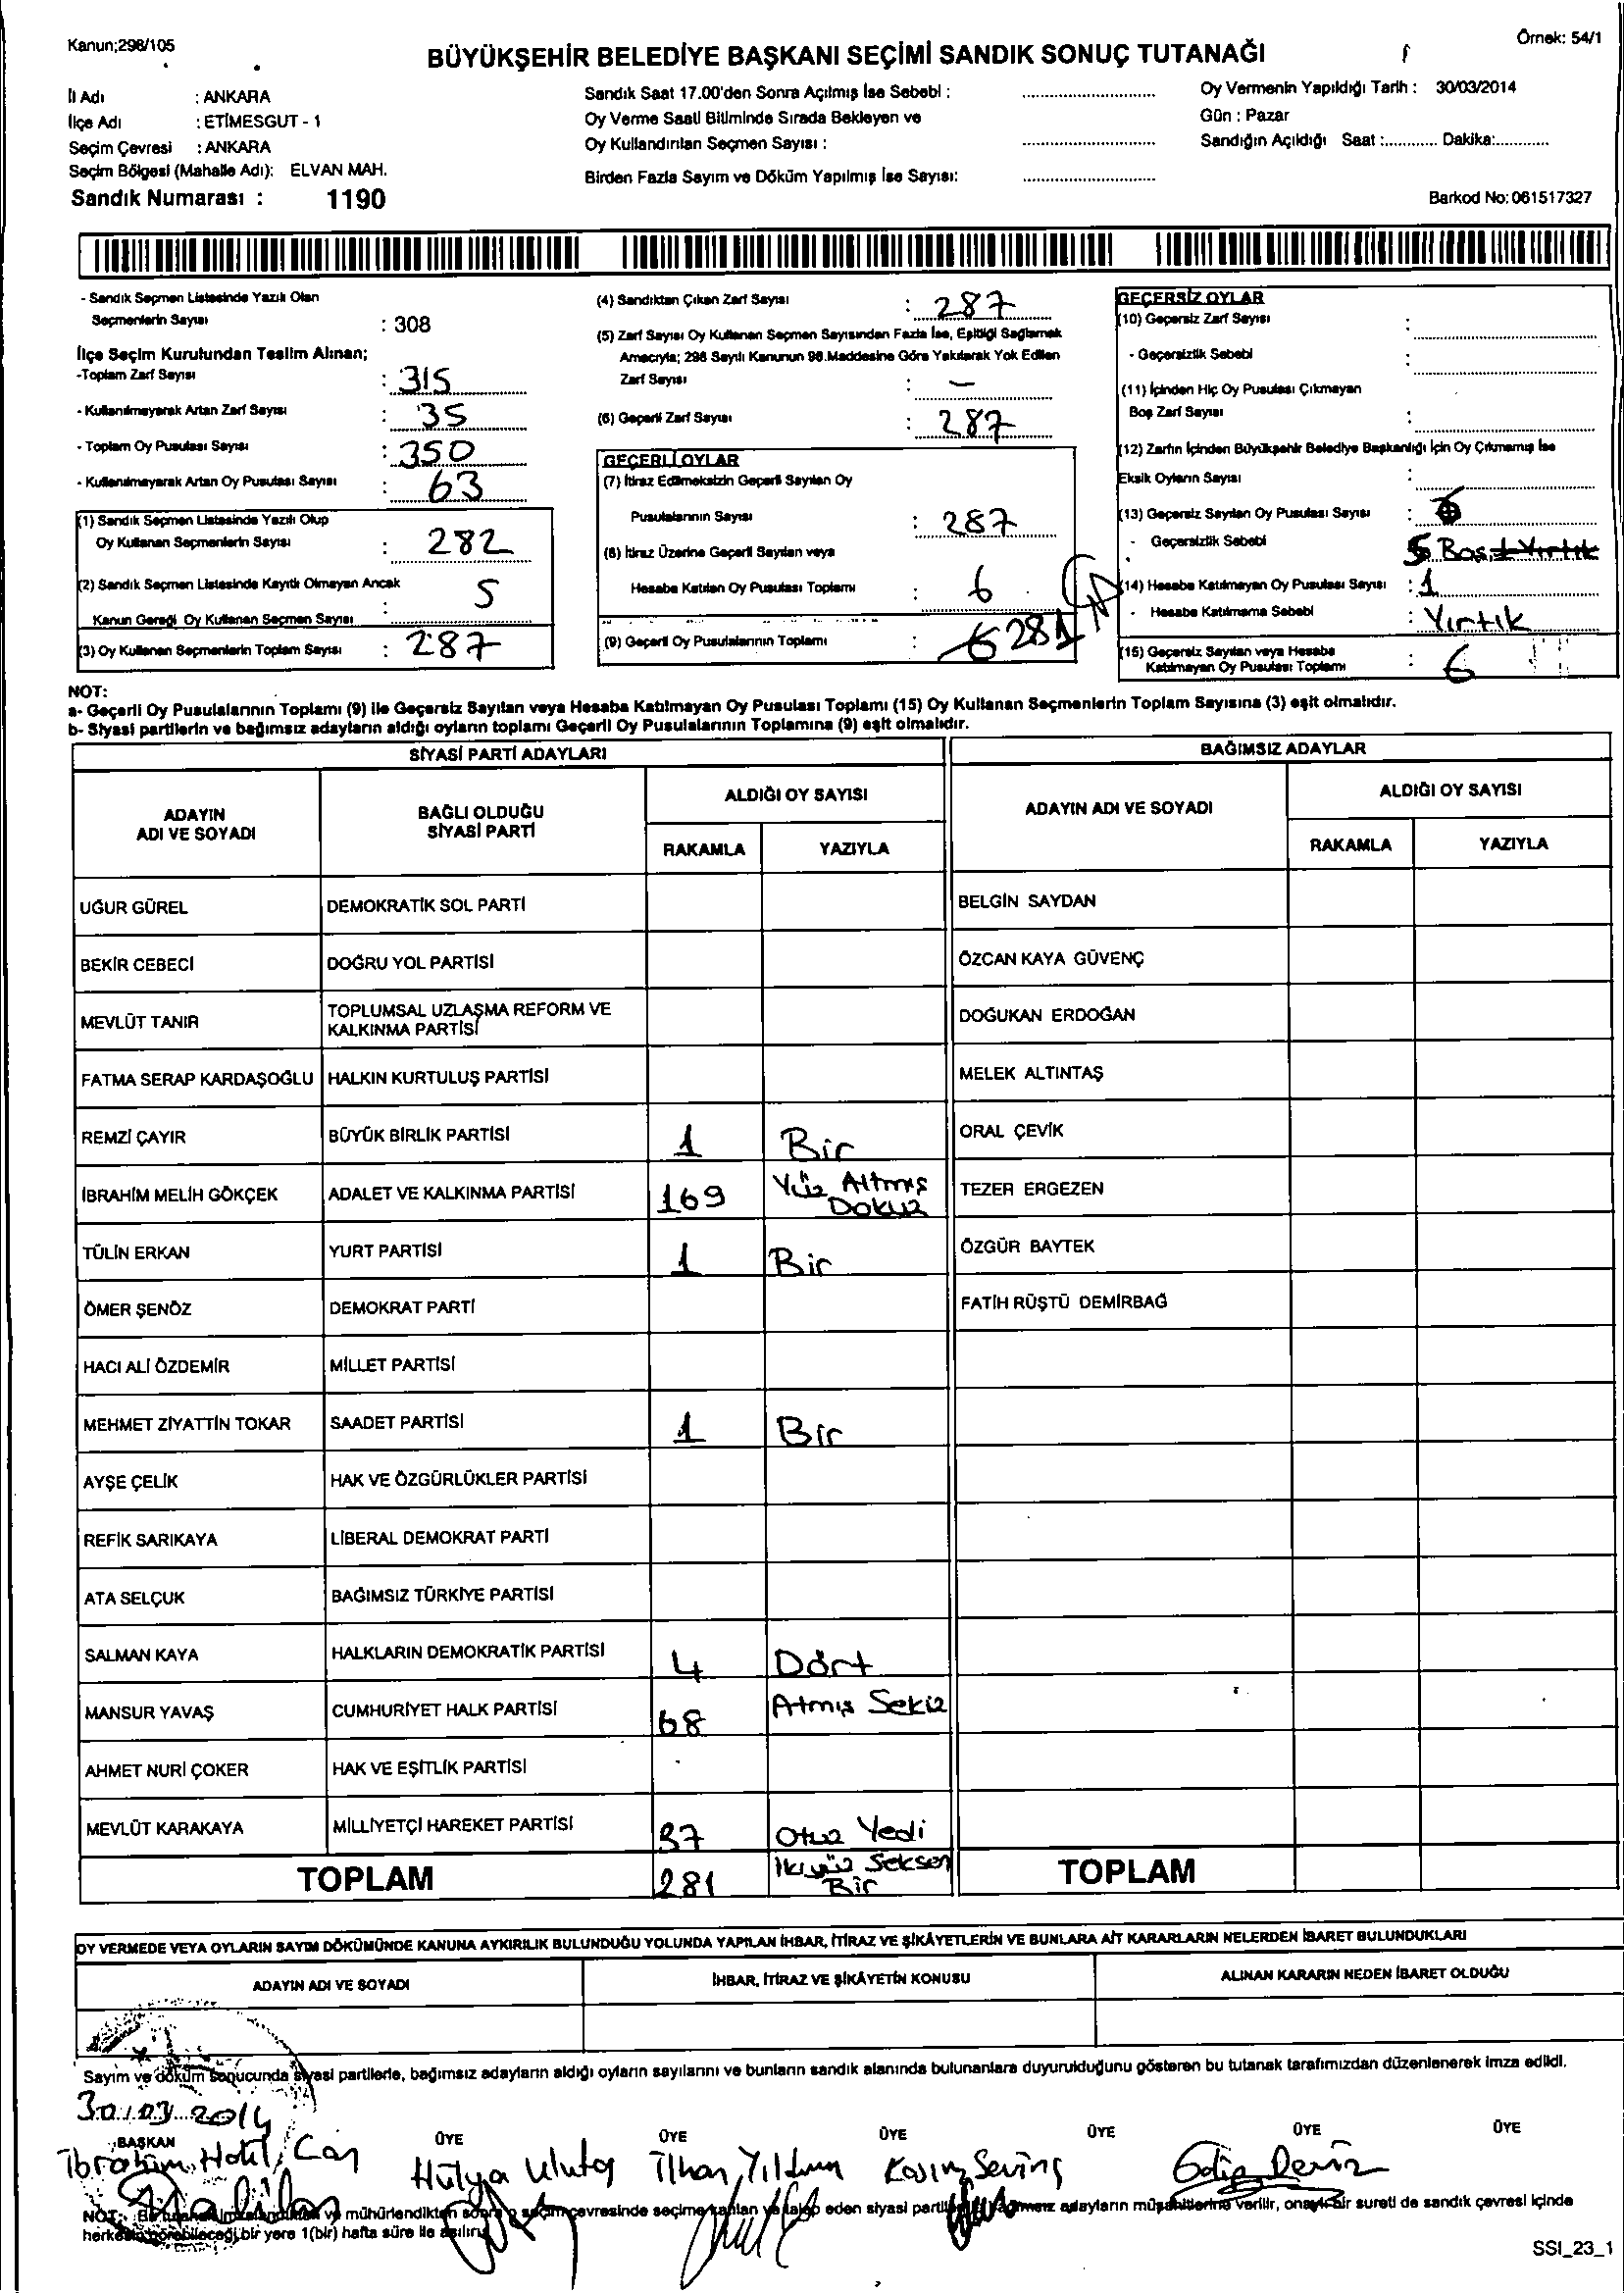 Kanun;298/105
Örnek: 54/1
BÜYÜKŞEHİR BELEDİYE BAŞKANI SEÇİMİ SANDIK SONUÇ TUTANAĞI
İl Adı : ANKARA
İlçe Adı : ETİMESGUT - 1
Seçim Çevresi : ANKARA
Seçim Bölgesi (Mahalle Adı): ELVAN MAH.
Sandık Numarası : 1190
Sandık Saat 17.00'den Sonra Açılmış İse Sebebi :
Oy Verme Saati Bitiminde Sırada Bekleyen ve
Oy Kullandırılan Seçmen Sayısı :
Birden Fazla Sayım ve Döküm Yapılmış İse Sayısı:
Oy Vermenin Yapıldığı Tarih : 30/03/2014
Gün : Pazar
Sandığın Açıldığı Saat :............ Dakika:............
Barkod No: 061517327
- Sandık Seçmen Listesinde Yazılı Olan
Seçmenlerin Sayısı : 308
İlçe Seçim Kurulundan Teslim Alınan;
-Toplam Zarf Sayısı : 315
- Kullanılmayarak Artan Zarf Sayısı : 35
- Toplam Oy Pusulası Sayısı : 350
- Kullanılmayarak Artan Oy Pusulası Sayısı : 63
(1) Sandık Seçmen Listesinde Yazılı Olup
Oy Kullanan Seçmenlerin Sayısı : 282
(2) Sandık Seçmen Listesinde Kayıtlı Olmayan Ancak
Kanun Gereği Oy Kullanan Seçmen Sayısı : 5
(3) Oy Kullanan Seçmenlerin Toplam Sayısı : 287
(4) Sandıktan Çıkan Zarf Sayısı : 287
(5) Zarf Sayısı Oy Kullanan Seçmen Sayısından Fazla İse, Eşitliği Sağlamak
Amacıyla; 298 Sayılı Kanunun 98.Maddesine Göre Yakılarak Yok Edilen
Zarf Sayısı : -
(6) Geçerli Zarf Sayısı : 287
GEÇERLİ OYLAR
(7) İtiraz Edilmeksizin Geçerli Sayılan Oy
Pusulalarının Sayısı : 287
(8) İtiraz Üzerine Geçerli Sayılan veya
Hesaba Katılan Oy Pusulası Toplamı : 6
(9) Geçerli Oy Pusulalarının Toplamı : 6 281
GEÇERSİZ OYLAR
(10) Geçersiz Zarf Sayısı :
- Geçersizlik Sebebi :
(11) İçinden Hiç Oy Pusulası Çıkmayan
Boş Zarf Sayısı :
(12) Zarfın İçinden Büyükşehir Belediye Başkanlığı İçin Oy Çıkmamış İse
Eksik Oyların Sayısı :
(13) Geçersiz Sayılan Oy Pusulası Sayısı :
- Geçersizlik Sebebi : 5 Boş 1 Yırtık
(14) Hesaba Katılmayan Oy Pusulası Sayısı : 1
- Hesaba Katılmama Sebebi : Yırtık
(15) Geçersiz Sayılan veya Hesaba
Katılmayan Oy Pusulası Toplamı : 6
NOT:
a- Geçerli Oy Pusulalarının Toplamı (9) ile Geçersiz Sayılan veya Hesaba Katılmayan Oy Pusulası Toplamı (15) Oy Kullanan Seçmenlerin Toplam Sayısına (3) eşit olmalıdır.
b- Siyasi partilerin ve bağımsız adayların aldığı oyların toplamı Geçerli Oy Pusulalarının Toplamına (9) eşit olmalıdır.
SİYASİ PARTİ ADAYLARI
BAĞIMSIZ ADAYLAR
ADAYIN ADI VE SOYADI
BAĞLI OLDUĞU SİYASİ PARTİ
ALDIĞI OY SAYISI
RAKAMLA YAZIYLA
ADAYIN ADI VE SOYADI
ALDIĞI OY SAYISI
RAKAMLA YAZIYLA
UĞUR GÜREL DEMOKRATİK SOL PARTİ BELGİN SAYDAN
BEKİR CEBECİ DOĞRU YOL PARTİSİ ÖZCAN KAYA GÜVENÇ
MEVLÜT TANIR TOPLUMSAL UZLAŞMA REFORM VE KALKINMA PARTİSİ DOĞUKAN ERDOĞAN
FATMA SERAP KARDAŞOĞLU HALKIN KURTULUŞ PARTİSİ MELEK ALTINTAŞ
REMZİ ÇAYIR BÜYÜK BİRLİK PARTİSİ 1 Bir ORAL ÇEVİK
İBRAHİM MELİH GÖKÇEK ADALET VE KALKINMA PARTİSİ 169 Yüz Altmış Dokuz TEZER ERGEZEN
TÜLİN ERKAN YURT PARTİSİ 1 Bir ÖZGÜR BAYTEK
ÖMER ŞENÖZ DEMOKRAT PARTİ FATİH RÜŞTÜ DEMİRBAĞ
HACI ALİ ÖZDEMİR MİLLET PARTİSİ
MEHMET ZİYATTİN TOKAR SAADET PARTİSİ 1 Bir
AYŞE ÇELİK HAK VE ÖZGÜRLÜKLER PARTİSİ
REFİK SARIKAYA LİBERAL DEMOKRAT PARTİ
ATA SELÇUK BAĞIMSIZ TÜRKİYE PARTİSİ
SALMAN KAYA HALKLARIN DEMOKRATİK PARTİSİ 4 Dört
MANSUR YAVAŞ CUMHURİYET HALK PARTİSİ 68 Atmış Sekiz
AHMET NURİ ÇOKER HAK VE EŞİTLİK PARTİSİ
MEVLÜT KARAKAYA MİLLİYETÇİ HAREKET PARTİSİ 37 Otuz Yedi
TOPLAM 281 İkiyüz Seksen Bir TOPLAM
OY VERMEDE VEYA OYLARIN SAYIM DÖKÜMÜNDE KANUNA AYKIRILIK BULUNDUĞU YOLUNDA YAPILAN İHBAR, İTİRAZ VE ŞİKÂYETLERİN VE BUNLARA AİT KARARLARIN NELERDEN İBARET BULUNDUKLARI
ADAYIN ADI VE SOYADI
İHBAR, İTİRAZ VE ŞİKÂYETİN KONUSU
ALINAN KARARIN NEDEN İBARET OLDUĞU
Sayım ve döküm sonucunda siyasi partilerle, bağımsız adayların aldığı oyların sayılarını ve bunların sandık alanında bulunanlara duyurulduğunu gösteren bu tutanak tarafımızdan düzenlenerek imza edildi.
30/03/2014
BAŞKAN ÜYE ÜYE ÜYE ÜYE ÜYE ÜYE
İbrahim Halil Can Hülya Ulutaş İlhan Yıldırım Kasım Sevinç Edip Deniz
NOT: Bu tutanak imzalandıktan ve mühürlendikten sonra o seçim çevresinde seçime katılan ve talep eden siyasi partilerin ve bağımsız adayların müşahitlerine verilir, onaylı bir sureti de sandık çevresi içinde
herkesin görebileceği bir yere 1(bir) hafta süre ile asılır.
SSI_23_1